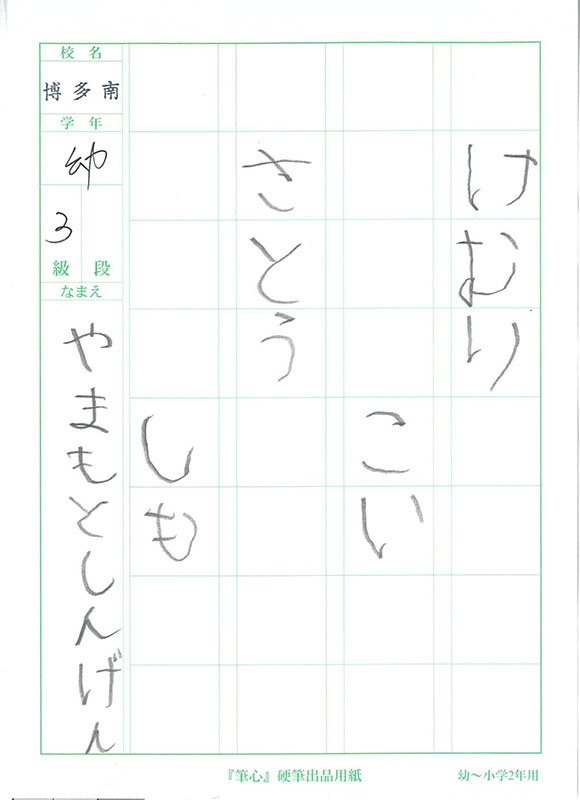 けむり
こい
さとう
しも
校名
博多南
学年
幼
3
級 段
なまえ
やまもとしんげん
『筆心』硬筆出品用紙
幼～小学2年用